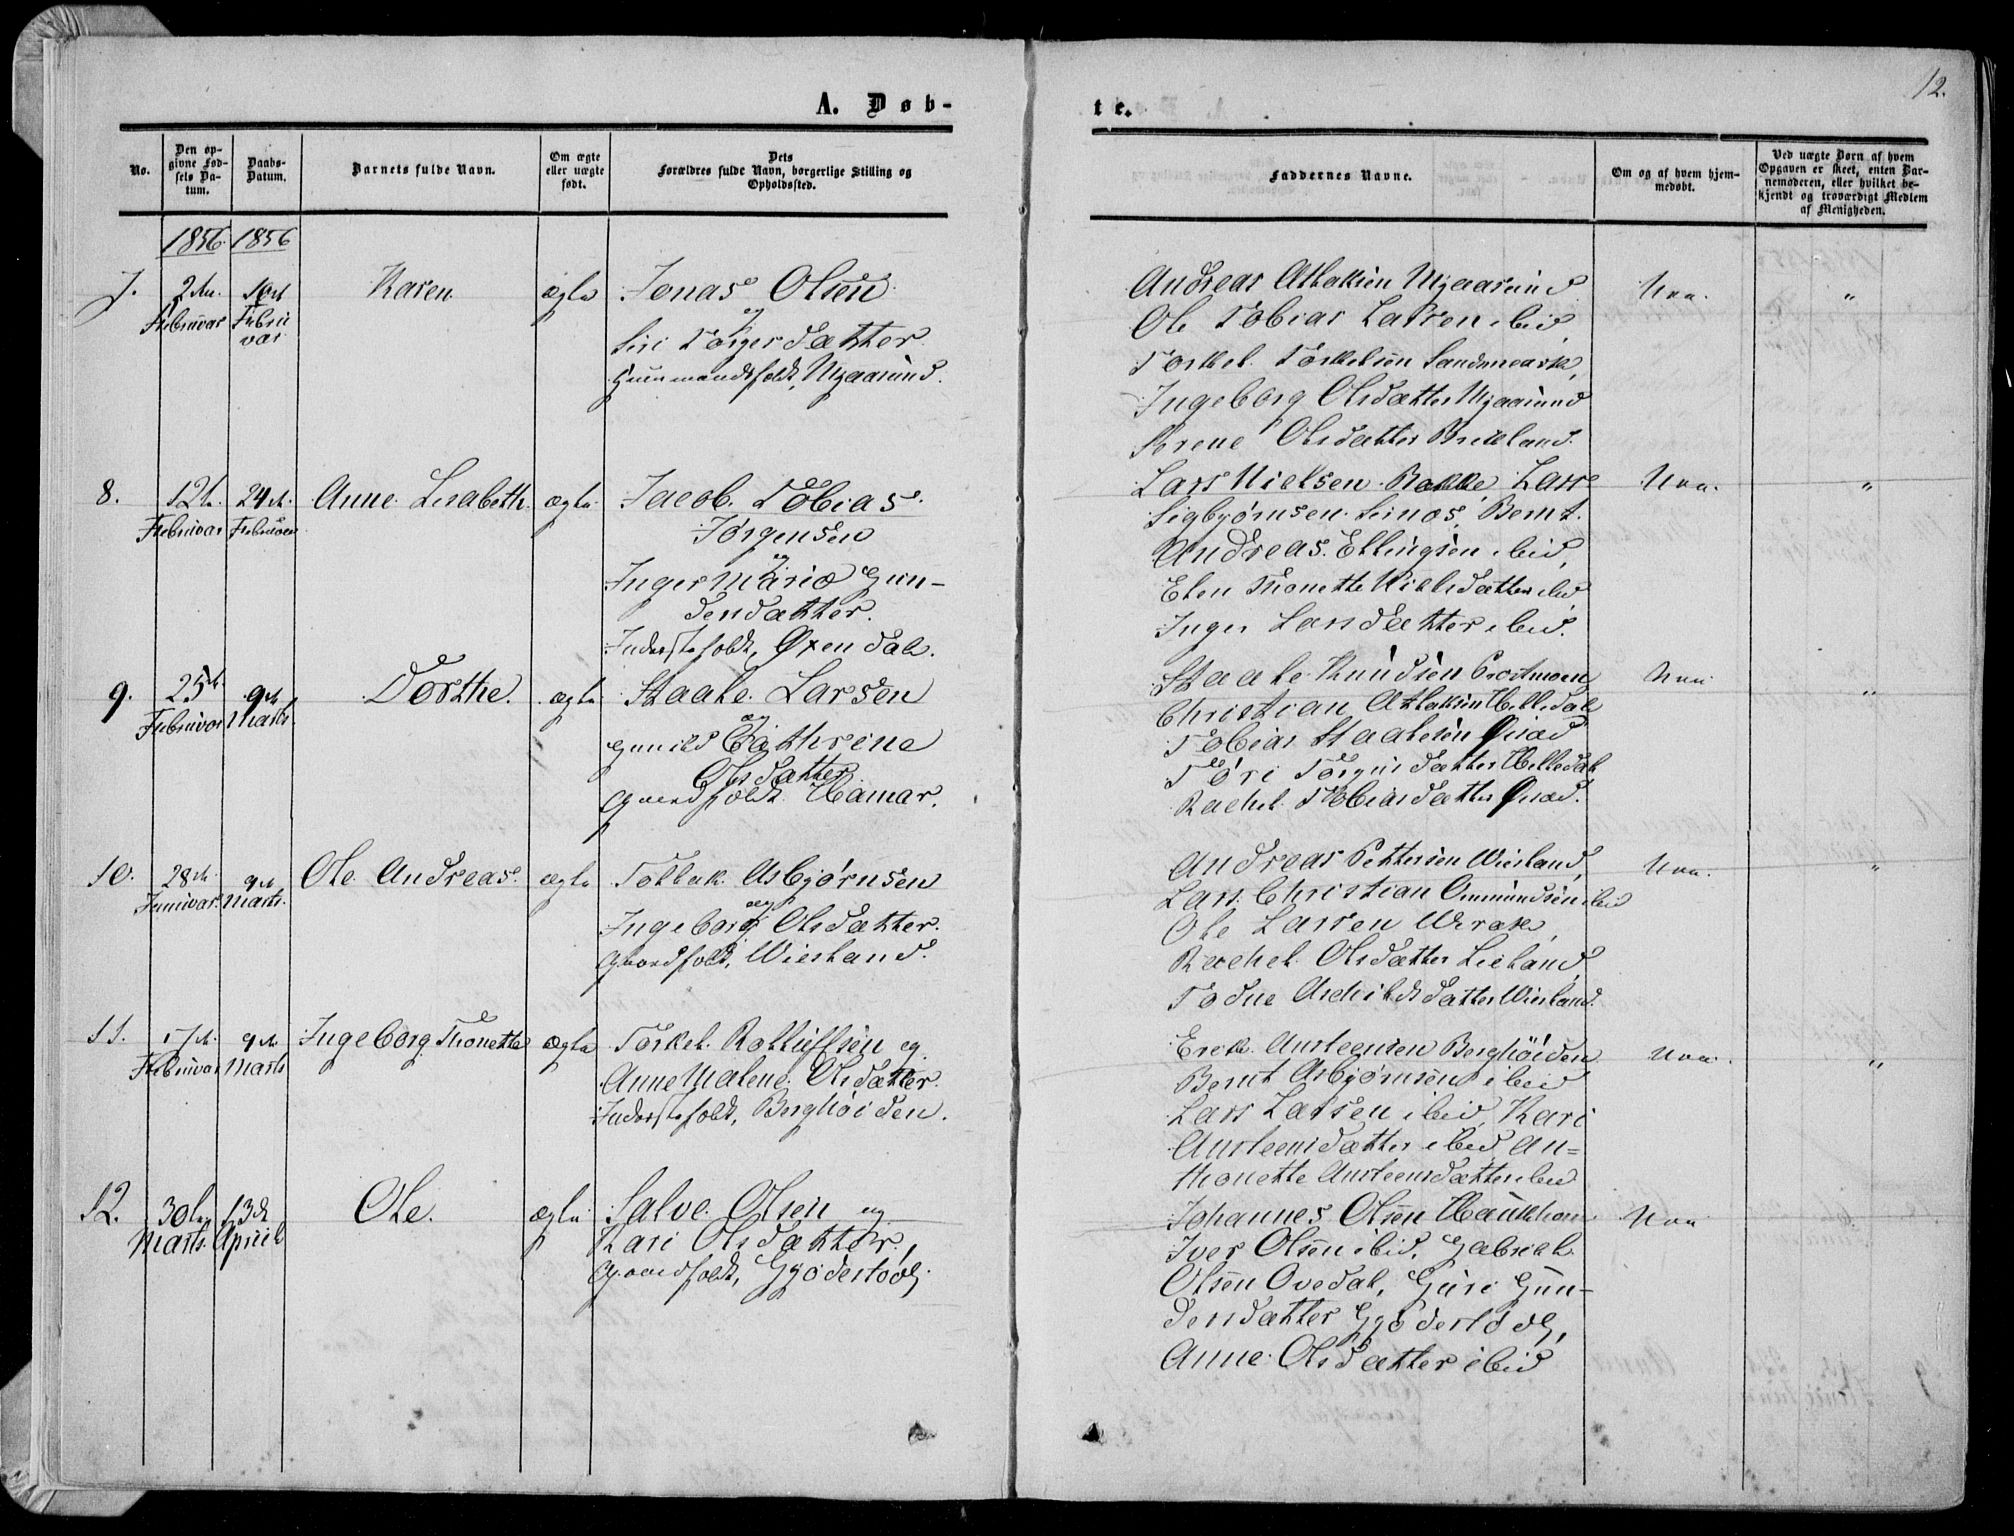 12.
A. Døb-
te.
No.
Den op-
givne Fød-
sels Da-
tum.
Daabs-
Datum.
Barnets fulde Navn.
Om ægte
eller uægte
født.
Dets
Forældres fulde Navn, borgerlige Stilling og
Opholdssted.
Faddernes Navne.
Om og af hvem hjem-
medøbt.
Ved uægte Børn af hvem
Opgaven er skeet, enten Bar-
nemoderen, eller hvilket be-
kjendt og troværdigt Medlem
af Menigheden.
1856. 1856
7.
2den
Februar
10de
Febru
var
Karen.
ægte
Jonas Olsen
og
Siri Torgersdatter
Huusmandsfolk, Mjaasund.
Andreas Atlaksen Mjaasund
Ole Tobias Larsen ibid
Torkel Torkelsen Sandsmark,
Ingeborg Olsdatter Mjaasund
Serene Olsdatter Birkeland.
Nei.
"
8.
12te
Februar
24de
Februar
Anne Lisabeth
ægte
Jacob Tobias
Jørgensen
og
Inger Marie Gun-
densdatter.
Inderstefolk, Øxendal.
Lars Nielsen Bakke, Lars
Sigbjørnsen Sirnes, Bernt
Andreas Ellingsen ibid,
Elen Thonette Nielsdatter ibid
Inger Larsdatter ibid.
Nei.
"
9.
25de
Februar
9de
Marts
Dorthe.
ægte
Staale Larsen
og
Gunild Cathrine
Olsdatter
Gaardfolk Hamar.
Staale Knudsen
Christian Atlaksen Helledal
Tobias Staalesen Qviad
Tori Torgersdatter Helledal
Rachel Tobiasdatter Qviad.
Nei
"
10.
28de
Januar
9de
Marts.
Ole Andreas.
ægte
Tollak Asbjørnsen
og
Ingeborg Olsdatter.
Gaardfolk, Wiesland.
Andreas Pettersen Wiesland,
Lars Christian Ommundsen ibid
Ole Larsen Wirak,
Rachel Olsdatter Lieland
Todne Aschildsdatter Wiesland.
Nei.
"
11.
17de
Februar
9de
Marts
Ingeborg Thonette
ægte
Torkel Rolleifsen og
Anne Malene Olsdatter.
Inderstefolk, Berghøiden.
Erik Aursteensen Berghöiden
Bernt Asbjørnsen ibid
Lars Larsen ibid, Kari
Aursteensdatter ibid An=
thonette Aursteensdatter ibid
Nei.
"
12.
30te
Marts.
13de
April
Ole.
ægte
Salve Olsen og
Kari Olsdatter,
Gaardfolk, Gyderstøl.
Johannes Olsen Haukhom
Iver Olsen ibid, Gabriel
Olsen Ovedal, Guri Gun-
densdatter Gyderstøl,
Anne Olsdatter ibid
Nei